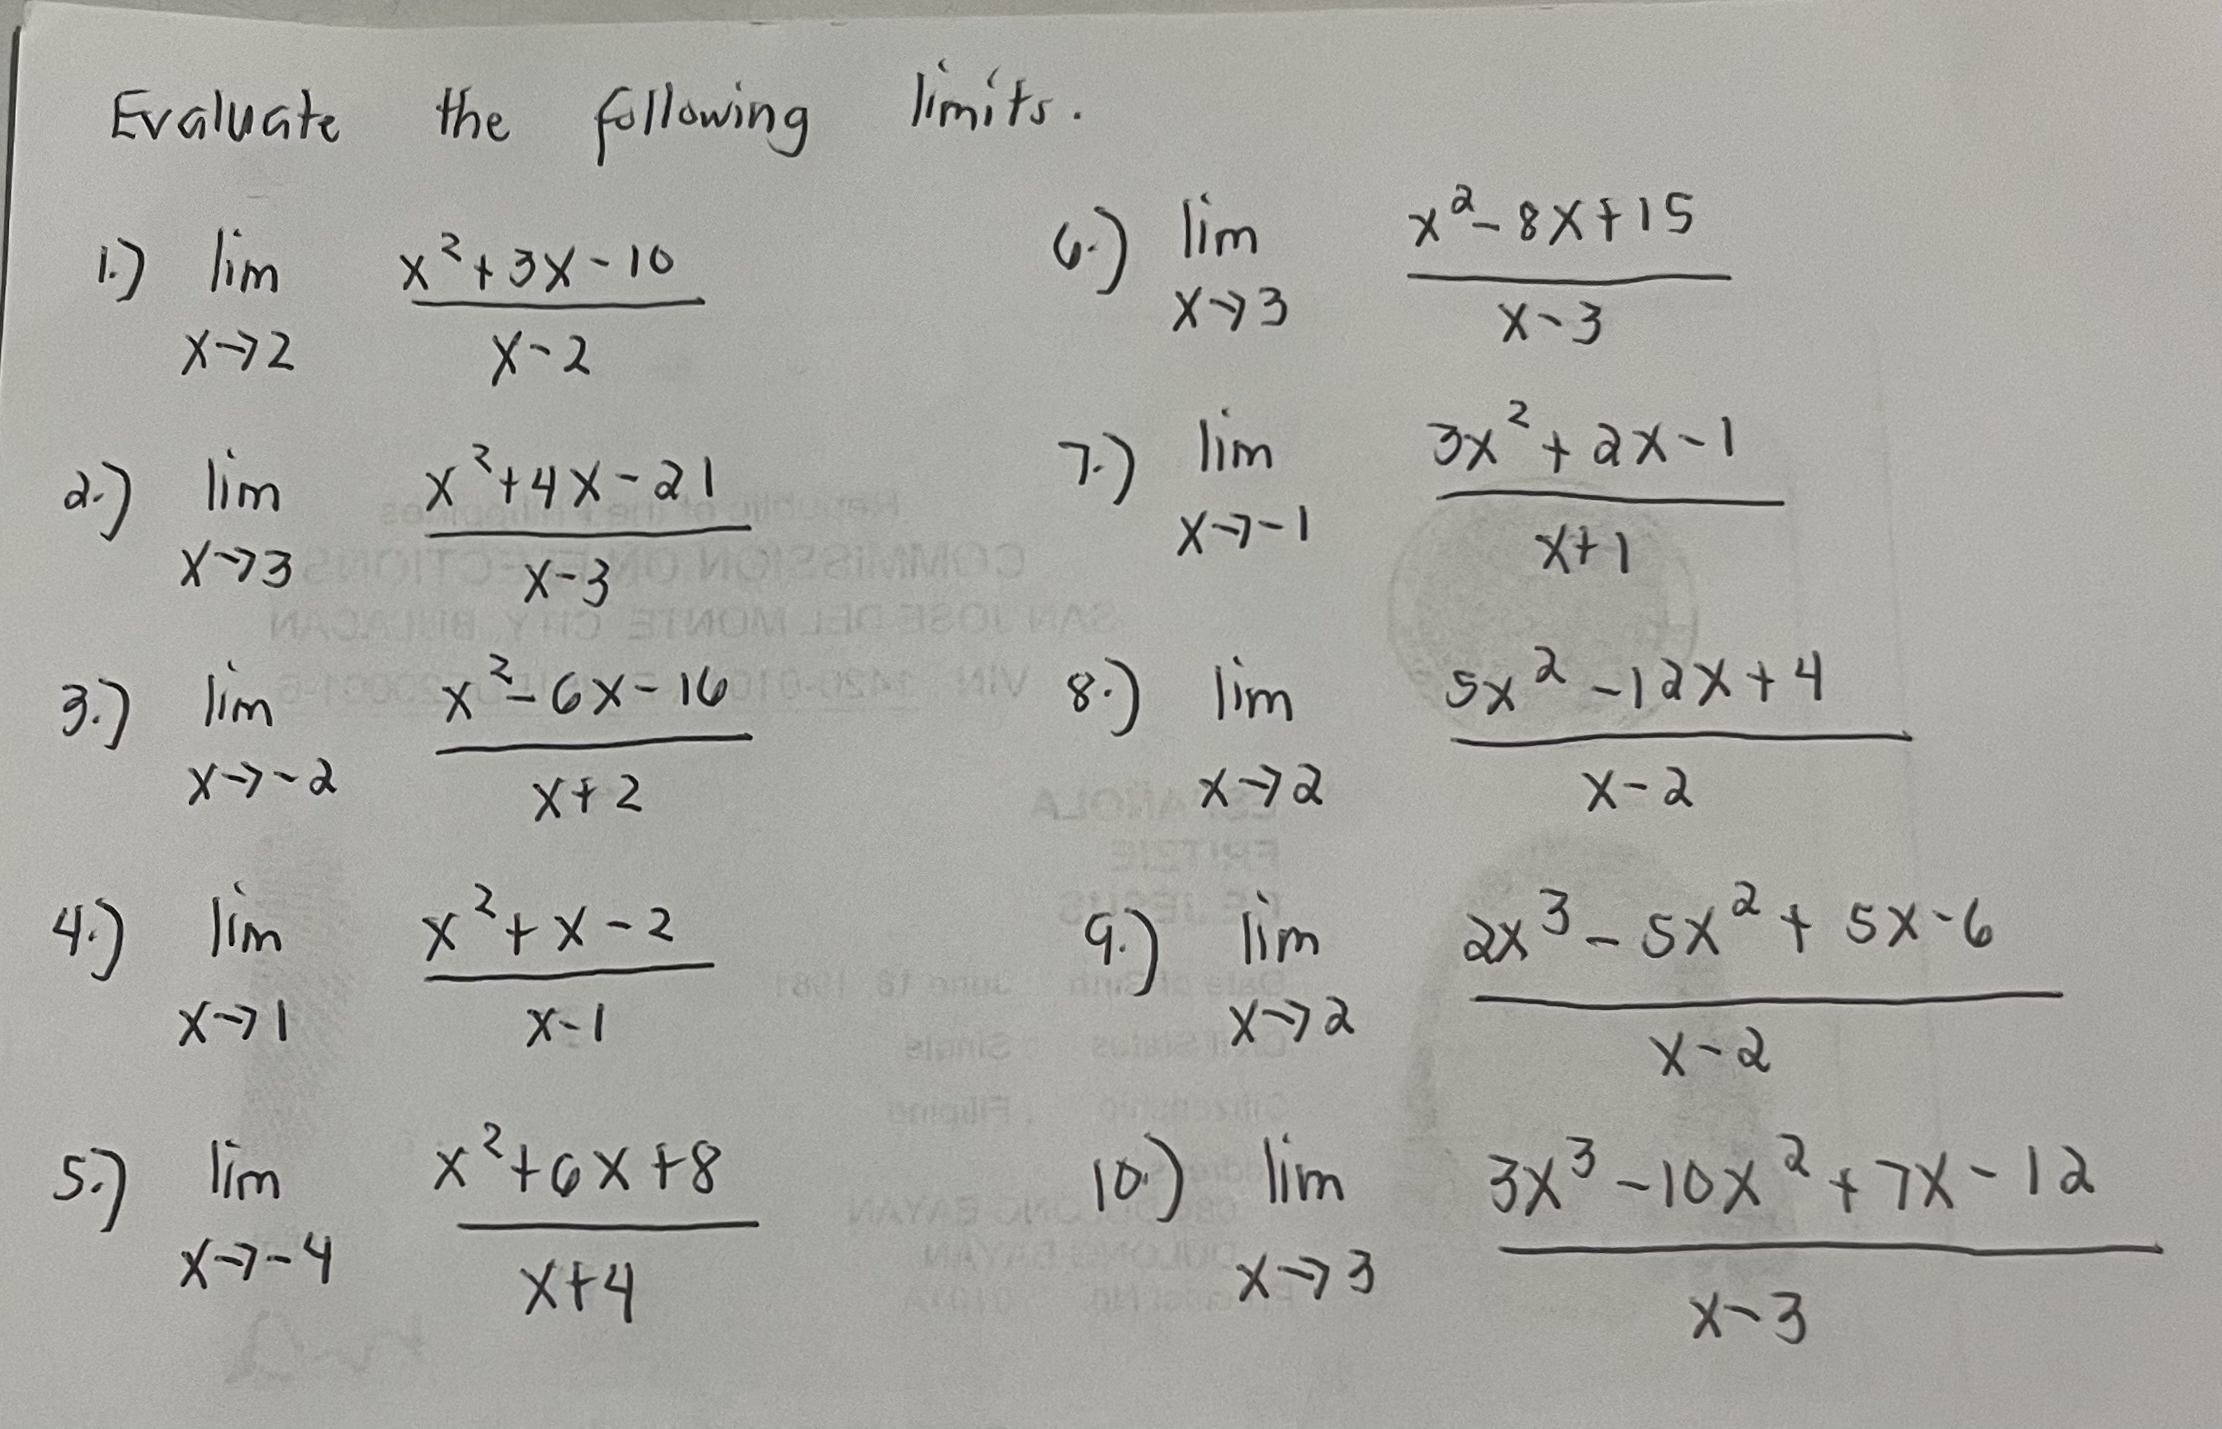 Evaluate the following limits.
1.) lim x→2 (x²+3x-10)/(x-2)
2.) lim x→3 (x²+4x-21)/(x-3)
3.) lim x→-2 (x²-6x-16)/(x+2)
4.) lim x→1 (x²+x-2)/(x-1)
5.) lim x→-4 (x²+6x+8)/(x+4)
6.) lim x→3 (x²-8x+15)/(x-3)
7.) lim x→-1 (3x²+2x-1)/(x+1)
8.) lim x→2 (5x²-12x+4)/(x-2)
9.) lim x→2 (2x³-5x²+5x-6)/(x-2)
10.) lim x→3 (3x³-10x²+7x-12)/(x-3)